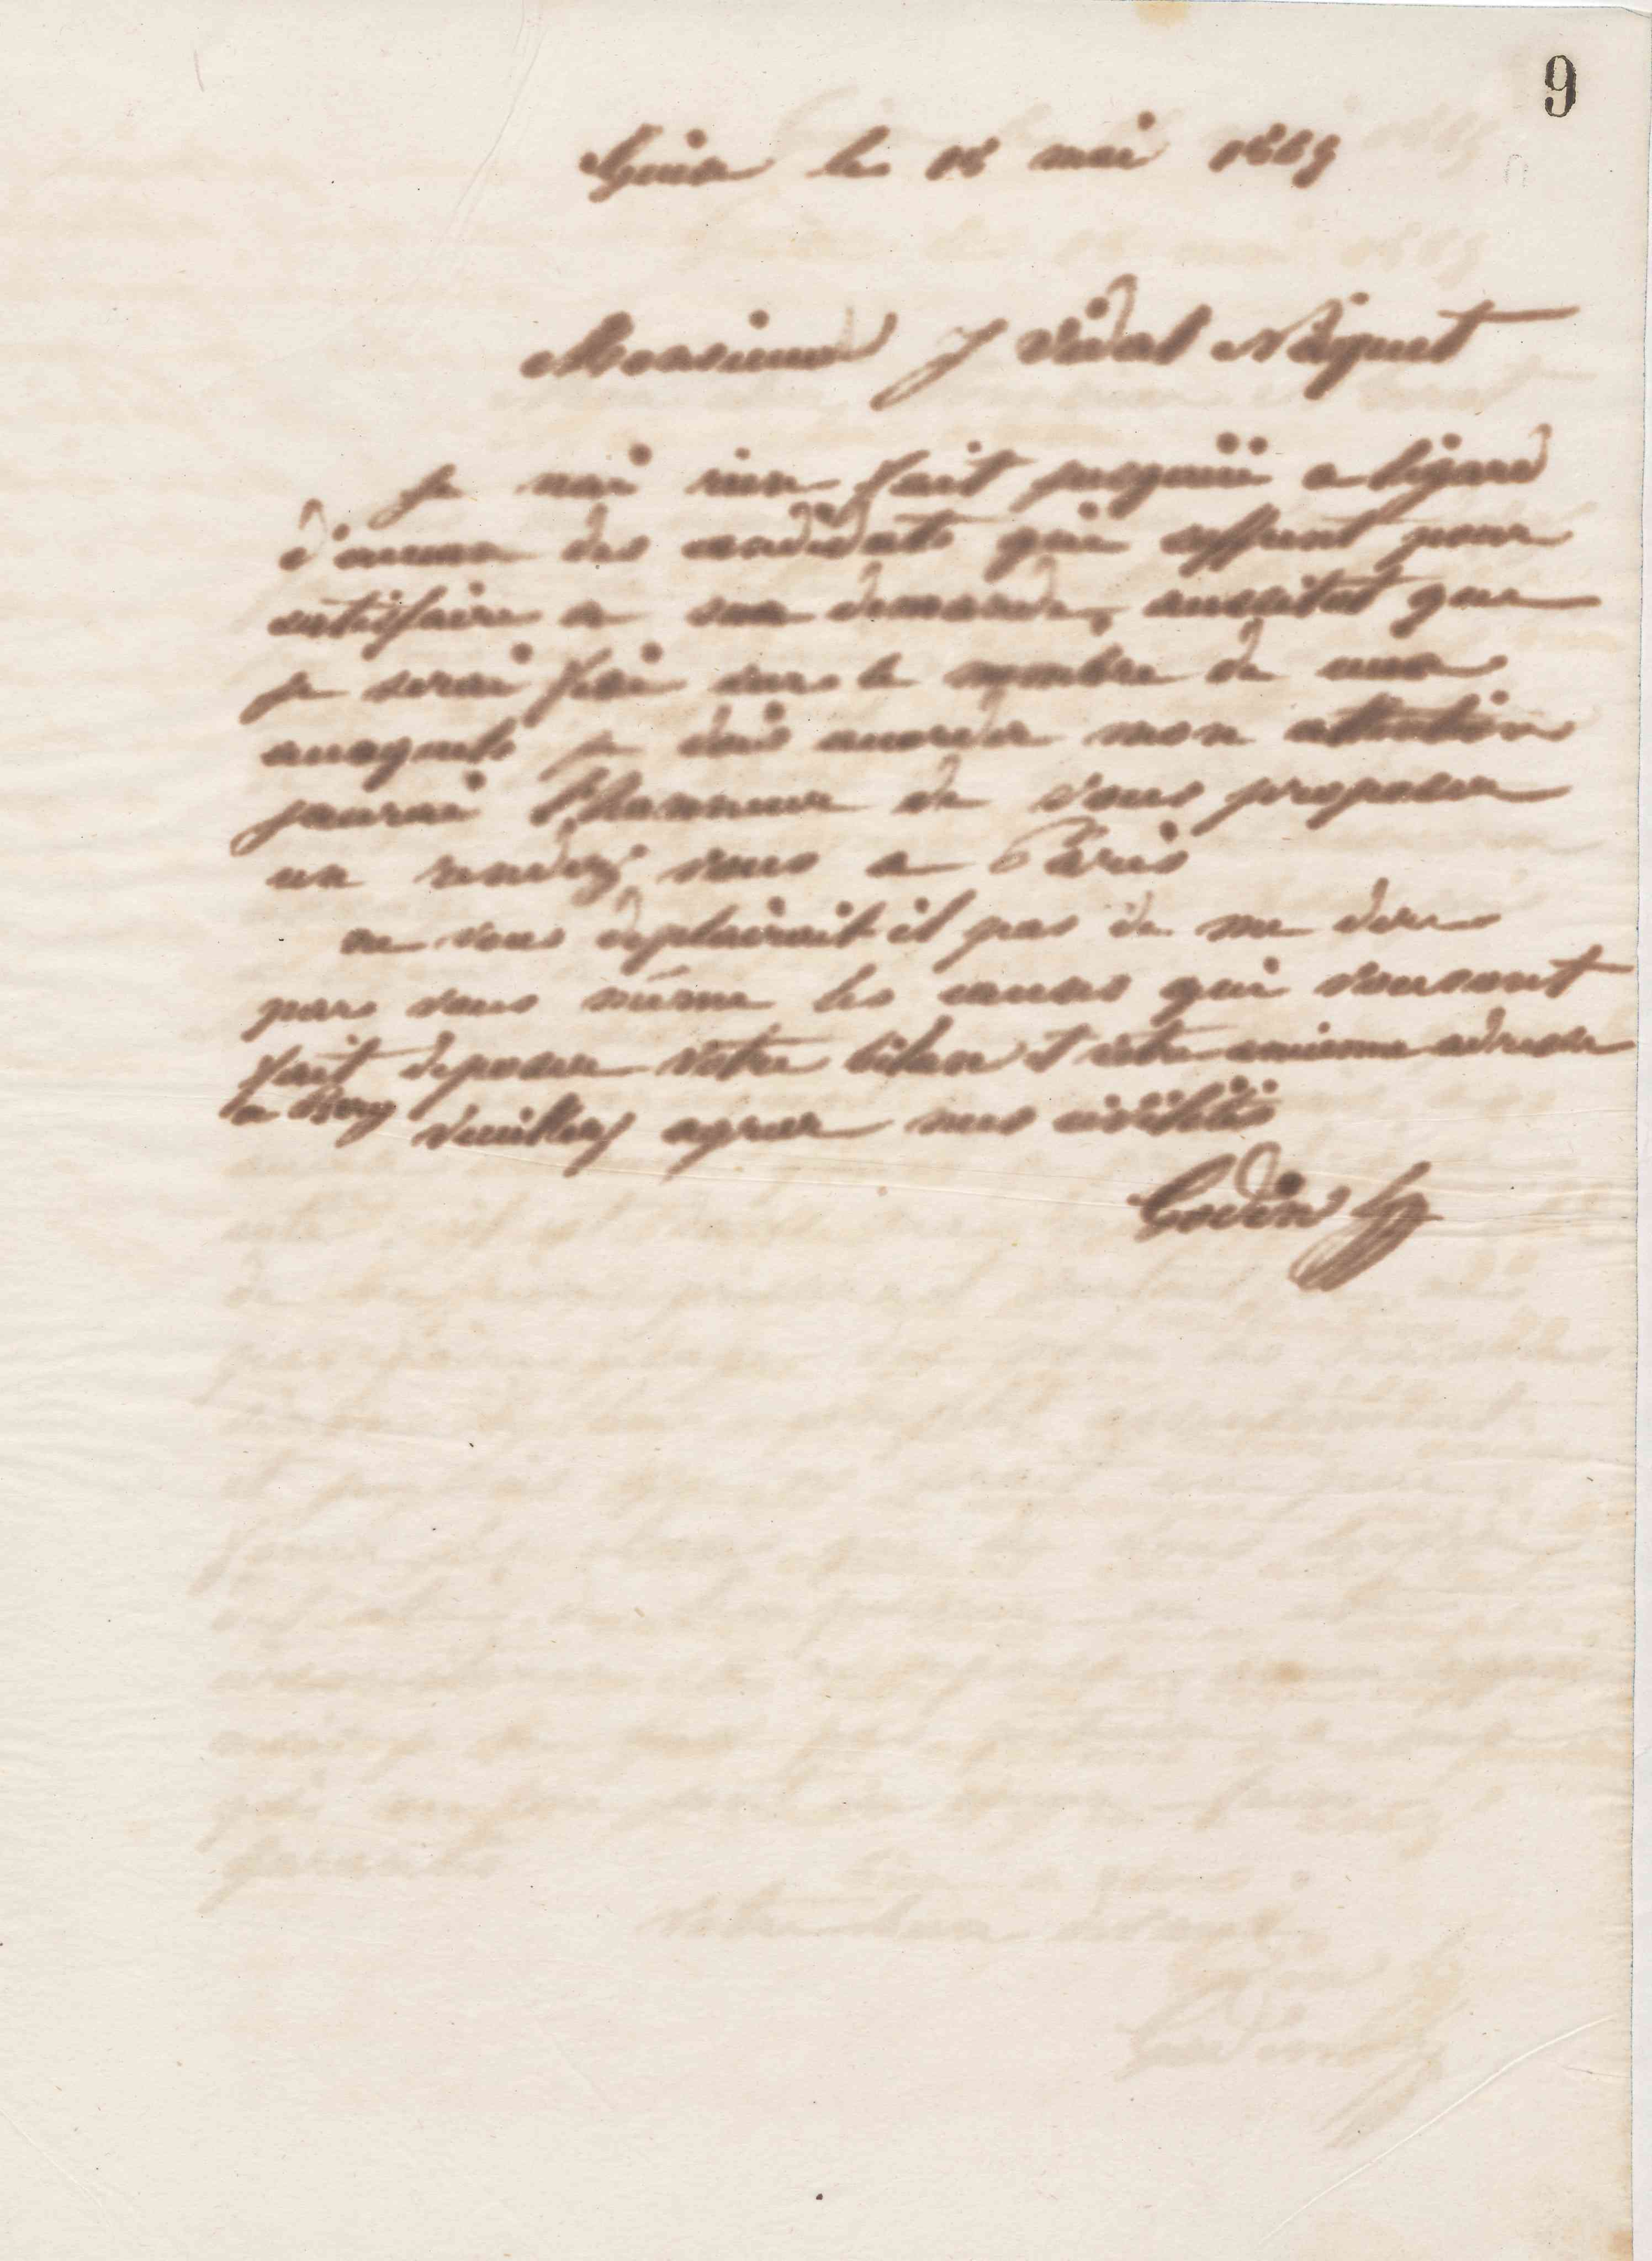 9
Guise le 18 mai 1865
Monsieur J Vidal Niquet
Je nai rien fait jusquici a légard
d'aucun des candidats qui offrent pour
satisfaire a ma demande, aussitot que
je serai fixé sur le nombre de ceux
auxquels je dois accorder mon attention
jaurai l'honneur de vous proposer
un rendez vous a Paris
ne vous deplairait il pas de me dire
par vous même les causes qui vous ont
fait deposer votre bilan et votre ancienne adresse
a Bercy
Veuillez agreer mes civilités
Godin